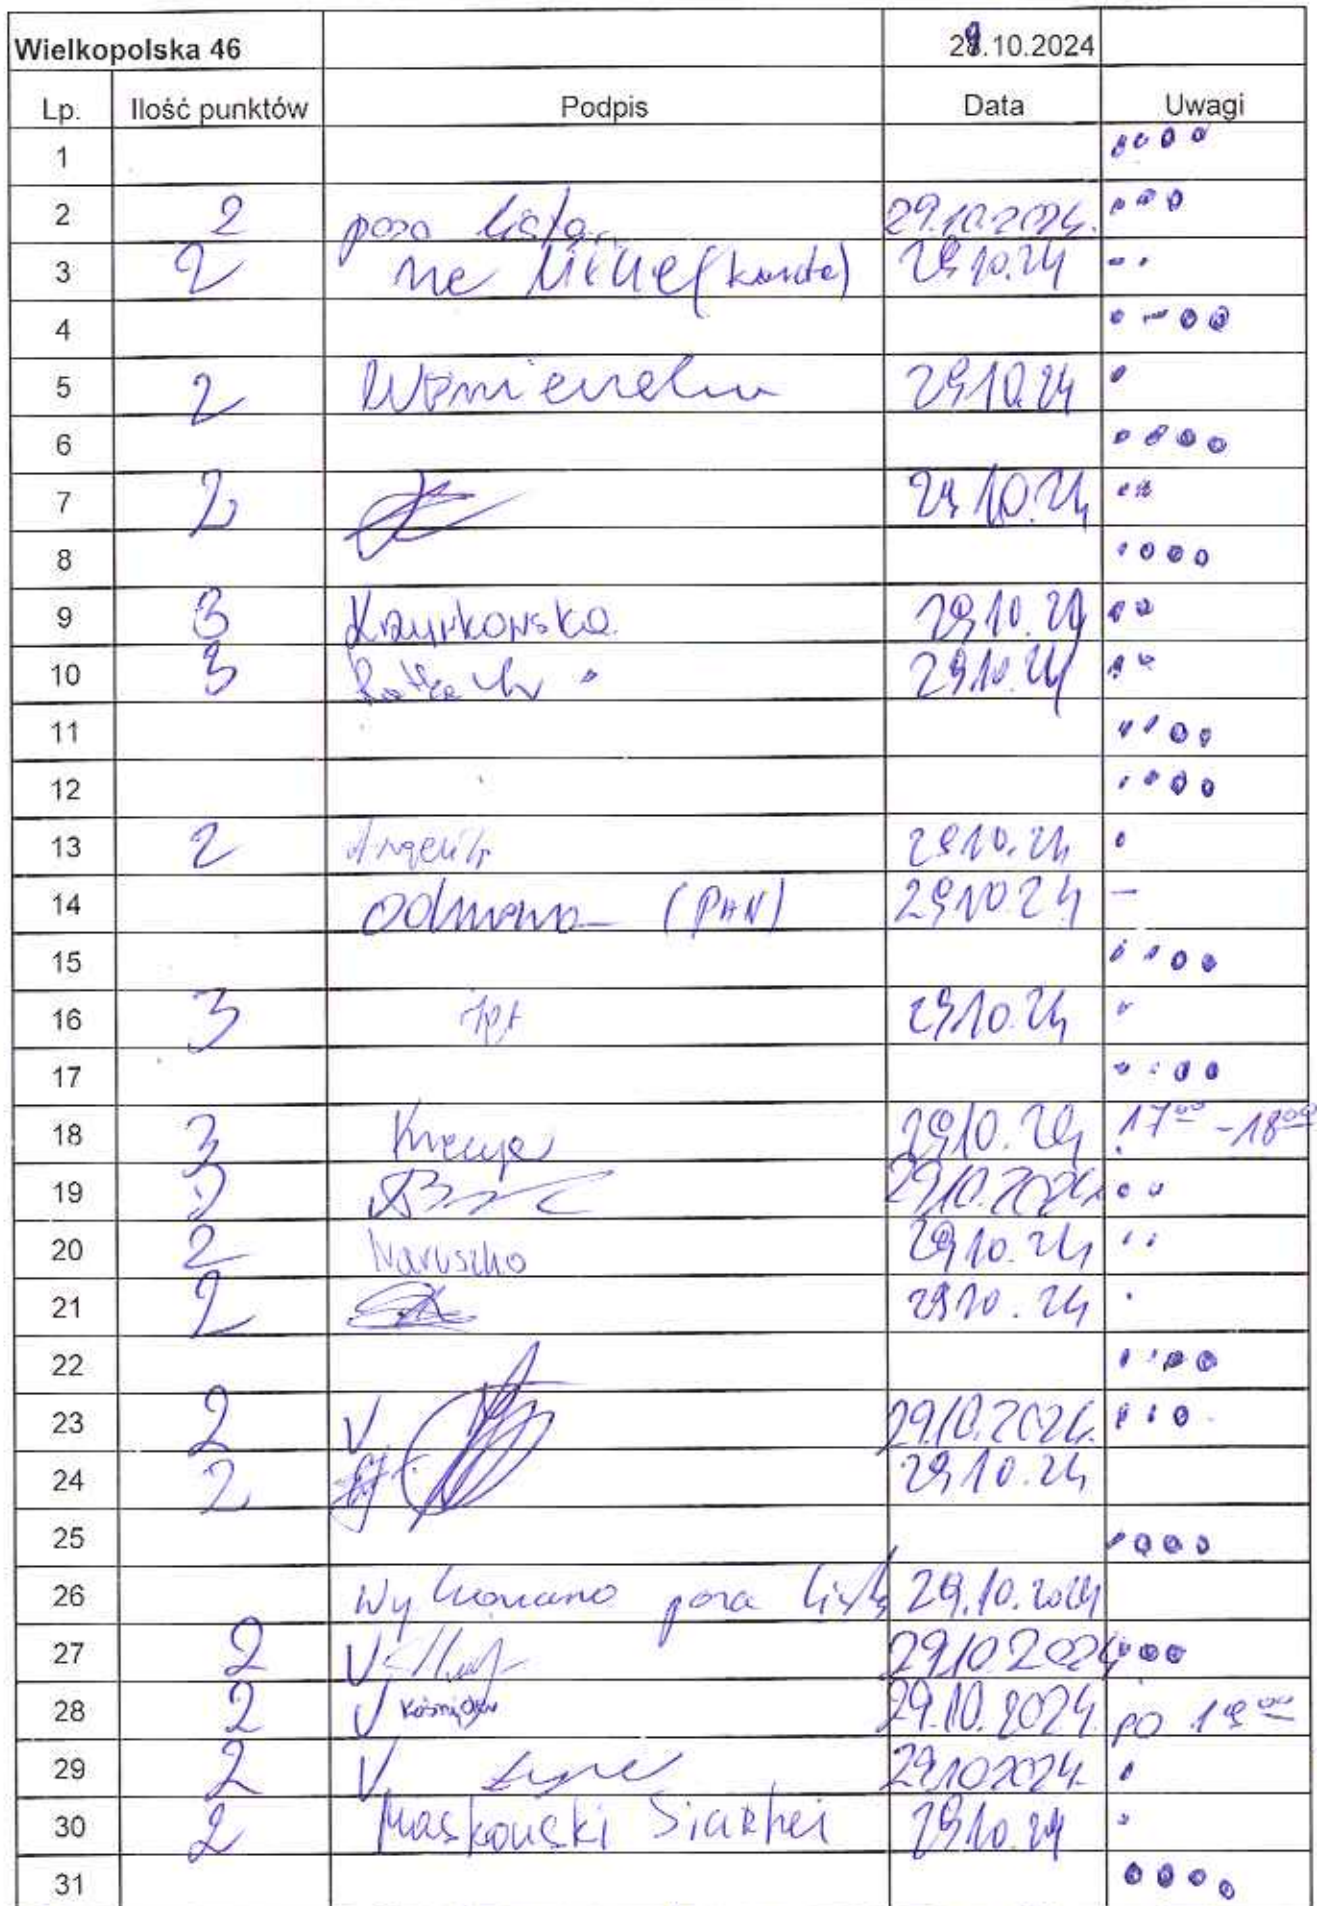 Wielkopolska 46 29.10.2024
Lp. Ilość punktów Podpis Data Uwagi
1
2 2 poza listą 29.10.2024.
3 2 (karta) 29.10.24
4
5 2 29.10.24
6
7 2 29.10.24
8
9 3 29.10.24
10 3 29.10.24
11
12
13 2 29.10.24
14 odmowa (PAN) 29.10.24 –
15
16 3 29.10.24
17
18 3 29.10.24 17⁰⁰ - 18⁰⁰
19 2 29.10.2024
20 2 Naruszko 29.10.24
21 2 29.10.24
22
23 2 V 29.10.2024.
24 2 29.10.24
25
26 Wykonano poza listą 29.10.2024
27 2 V 29.10.2024
28 2 V 29.10.2024. po
29 2 V 29.10.2024.
30 2 Maskouski Siarhei 29.10.24
31